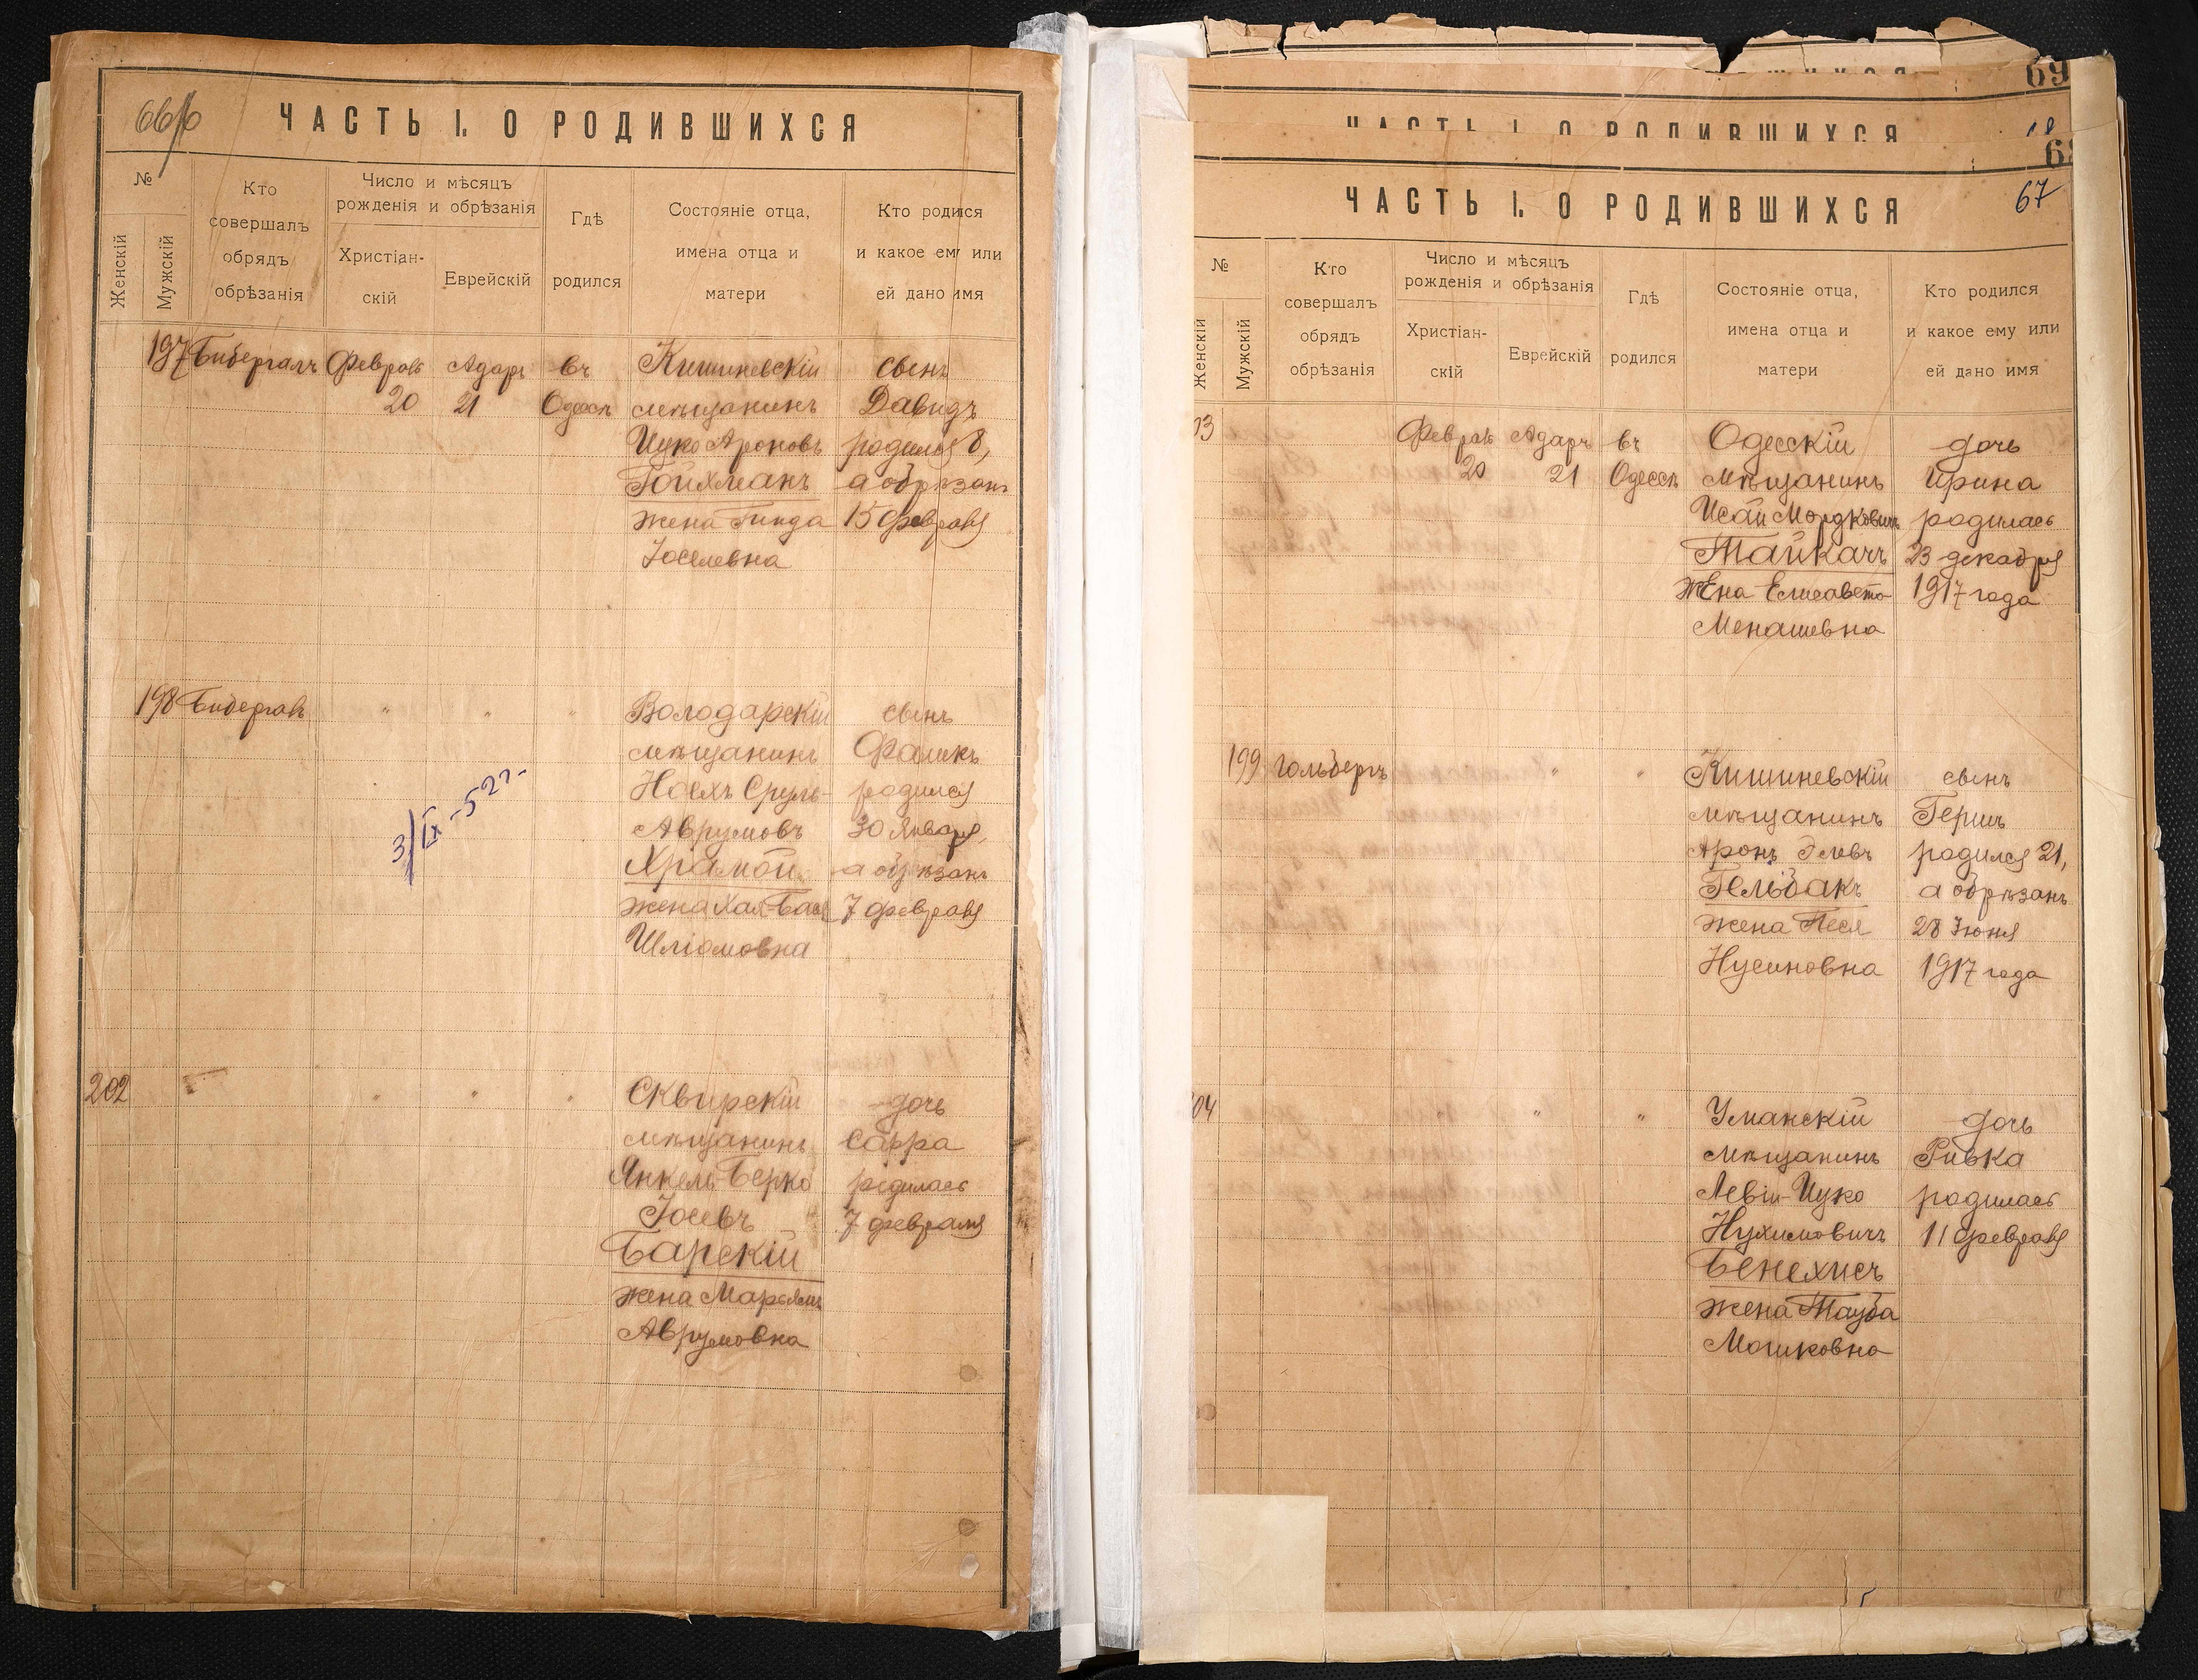 ЧАСТЬ I. О РОДИВШИХСЯ
№
Женскій
Мужскій
Кто
совершалъ
обрядъ
обрѣзанія
Число и мѣсяцъ
рожденія и обрѣзанія
Христіан-
скій
Еврейскій
Гдѣ
родился
Состояніе отца,
имена отца и
матери
Кто родися
и какое ему или
ей дано имя
197 Бибергалъ Февраль Адаръ въ Кишиневскій сынъ
20 21 Одессѣ мѣщанинъ Давидъ
Ицко Ароновъ родился 8,
Гойхманъ а обрѣзанъ
жена Гинда 15 февраля
Іоселевна
198 Бибергалъ " " " Володарскій сынъ
мѣщанинъ Фроимъ
Ноехъ Сруль- родился
Аврумовъ 30 Января,
Храмой а обрѣзанъ
жена Хая-Бася 7 февраля
Шліомовна
3/IX-52г.
202 " " " Сквирскій дочь
мѣщанинъ Сарра
Янкель-Берко родилась
Іосевъ 7 февраля
Барскій
жена Марьямъ
Аврумовна
69
ЧАСТЬ I. О РОДИВШИХСЯ
ЧАСТЬ I. О РОДИВШИХСЯ
67
№
Женскій
Мужскій
Кто
совершалъ
обрядъ
обрѣзанія
Число и мѣсяцъ
рожденія и обрѣзанія
Христіан-
скій
Еврейскій
Гдѣ
родился
Состояніе отца,
имена отца и
матери
Кто родился
и какое ему или
ей дано имя
03 Февраль Адаръ въ Одесскій дочь
20 21 Одессѣ мѣщанинъ Ирина
Исай Мордковичъ родилась
Тайкачъ 23 декабря
жена Елисавета 1917 года
Менашевна
199 Гольбергъ " " Кишиневскій сынъ
мѣщанинъ Гершъ
Аронъ родился 21,
Гельбакъ а обрѣзанъ
жена Песя 28 Іюня
Нусиновна 1917 года
04 " " Уманскій дочь
мѣщанинъ Ривка
Левій-Ицко родилась
Нухимовичъ 11 февраля
Бенехисъ
жена Тауба
Мошковна